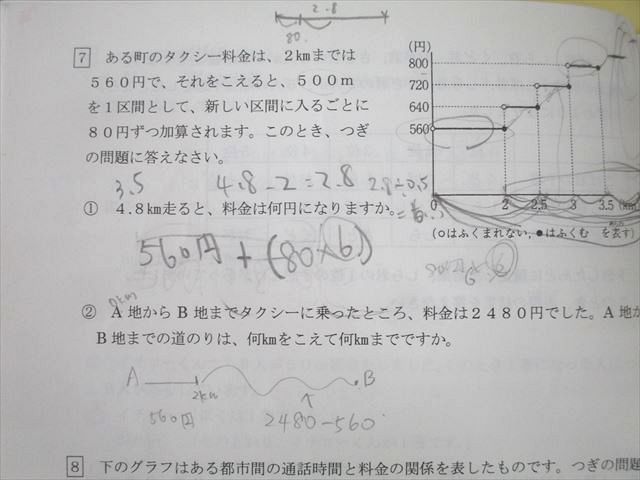 2.8
80
7 ある町のタクシー料金は、2kmまでは
560円で、それをこえると、500m
を1区間として、新しい区間に入るごとに
80円ずつ加算されます。このとき、つぎ
の問題に答えなさい。
(円)
800
720
640
560
0 2 2.5 3 3.5 (km)
(○はふくまれない, ●はふくむ を表す)
3.5 4.8-2=2.8 2.8÷0.5
① 4.8km走ると、料金は何円になりますか。
560円+(80×6)
0km
② A地からB地までタクシーに乗ったところ、料金は2480円でした。A地か
B地までの道のりは、何kmをこえて何kmまでですか。
A 2km B
560円 2480-560
8 下のグラフはある都市間の通話時間と料金の関係を表したものです。つぎの問題